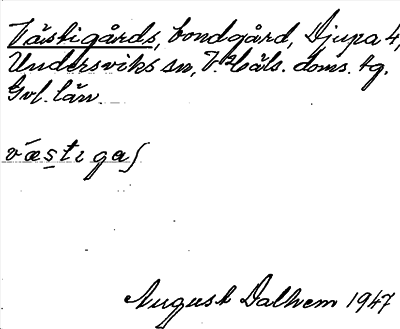 Västigårds, bondgård, Djupa 4,
Undersviks sn, V. Häls. doms. tg.
Gvl. län.
västıgaʃ
August Dalhem 1947